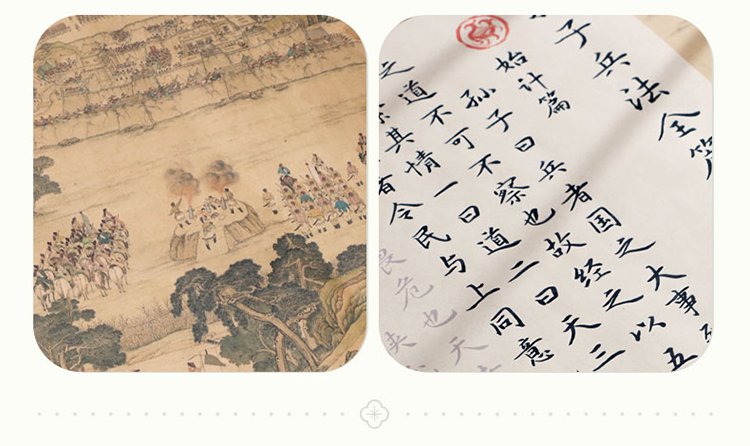 子兵法全
始计篇
孙子曰兵者国之大事
之道不可不察也故经之以五
其情一曰道二曰天三
者令民与上同意
畏危也天